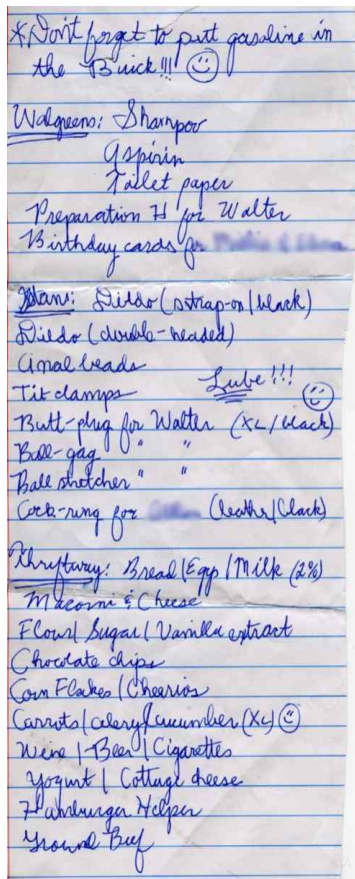 *Don't forget to putt gasoline in
the Buick!!! ☺
Walgreens: Shampoo
Aspirin
Toilet paper
Preparation H for Walter
Birthday cards for
Dildo (strap-on/black)
Dildo (double-headed)
Anal beads
Lube!!! ☺
Tit clamps
Butt-plug for Walter (XL/black)
Ball-gag " "
Ball stretcher " "
Cock-ring for (leather/black)
Thriftway: Bread/Eggs/Milk (2%)
Macorni & Cheese
Flour/Sugar/Vanilla extract
Chocolate chips
Corn Flakes/Cheerios
Carrots/celery/cucumber (XL) ☺
Wine/Beer/Cigarettes
Yogurt/Cottage cheese
Hamburger Helper
Ground Beef